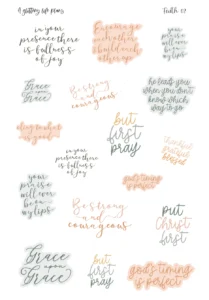 in your
presence there
is fullness
of joy
Encourage
each other
& build each
other up
your
praise
will ever
be on
my lips
Grace
upon
Grace
Be strong
and
courageous
but
first
pray
he leads you
when you don't
know which
way to go
in your
presence there
is fullness
of joy
thankful
grateful
blessed
your
praise
will ever
be on
my lips
god's timing
is perfect
Be strong
and
courageous
put
Christ
first
Grace
upon
Grace
but
first
pray
god's timing
is perfect